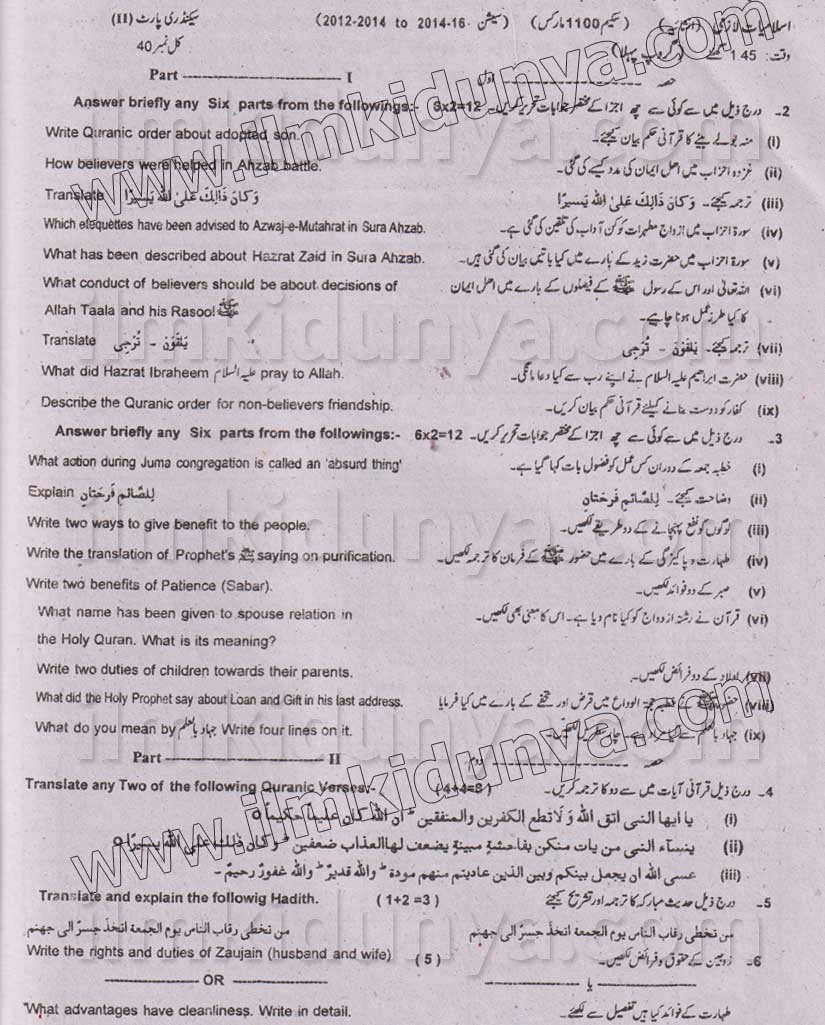 اسلامیات لازمی (انشائیہ) (سکیم 1100 مارکس) (سیشن 2012-2014 to 2014-16) سیکنڈری پارٹ (II)
وقت: 1.45 گھنٹے (گروپ پہلا) کل نمبر 40
Part I حصہ اول
Answer briefly any Six parts from the followings:- 6x2=12 2۔ درج ذیل میں سے کوئی سے چھ اجزا کے مختصر جوابات تحریر کریں۔
Write Quranic order about adopted son. (i) منہ بولے بیٹے کا قرآنی حکم بیان کیجئے۔
How believers were helped in Ahzab battle. (ii) غزوہ احزاب میں اھل ایمان کی مدد کیسے کی گئی۔
Translate وَكَانَ ذَالِكَ عَلَى اللّٰهِ يَسِيرًا (iii) ترجمہ کیجئے۔ وَكَانَ ذَالِكَ عَلَى اللّٰهِ يَسِيرًا
Which etequettes have been advised to Azwaj-e-Mutahrat in Sura Ahzab. (iv) سورۃ احزاب میں ازواج مطہرات کو کن آداب کی تلقین کی گئی ہے۔
What has been described about Hazrat Zaid in Sura Ahzab. (v) سورۃ احزاب میں حضرت زید کے بارے میں کیا باتیں بیان کی گئی ہیں۔
What conduct of believers should be about decisions of (vi) اللہ تعالیٰ اور اس کے رسول ﷺ کے فیصلوں کے بارے میں اھل ایمان
Allah Taala and his Rasool ﷺ کا کیا طرز عمل ہونا چاہیے۔
Translate يَلقَوْنَ - تُرْجِى (vii) ترجمہ کیجئے۔ يَلقَوْنَ - تُرْجِى
What did Hazrat Ibraheem علیہ السلام pray to Allah. (viii) حضرت ابراھیم علیہ السلام نے اپنے رب سے کیا دعا مانگی۔
Describe the Quranic order for non-believers friendship. (ix) کفار کو دوست بنانے کیلئے قرآنی حکم بیان کریں۔
Answer briefly any Six parts from the followings:- 6x2=12 3۔ درج ذیل میں سے کوئی سے چھ اجزا کے مختصر جوابات تحریر کریں۔
What action during Juma congregation is called an 'absurd thing' (i) خطبہ جمعہ کے دوران کس عمل کو فضول بات کہا گیا ہے۔
Explain لِلصَّائِمِ فَرحَتَانِ (ii) وضاحت کیجئے۔ لِلصَّائِمِ فَرحَتَانِ
Write two ways to give benefit to the people. (iii) لوگوں کو نفع پہنچانے کے دو طریقے لکھیں۔
Write the translation of Prophet's ﷺ saying on purification. (iv) طہارت و پاکیزگی کے بارے میں حضور ﷺ کے فرمان کا ترجمہ لکھیں۔
Write two benefits of Patience (Sabar). (v) صبر کے دو فوائد لکھیں۔
What name has been given to spouse relation in (vi) قرآن نے رشتہ ازدواج کو کیا نام دیا ہے۔ اس کا معنی بھی لکھیں۔
the Holy Quran. What is its meaning?
Write two duties of children towards their parents. (vii) اولاد کے دو فرائض لکھیں۔
What did the Holy Prophet say about Loan and Gift in his last address. (viii) حضور ﷺ کے خطبہ حجۃ الوداع میں قرض اور تحفے کے بارے میں کیا فرمایا
What do you mean by جہاد بالعلم Write four lines on it. (ix) جہاد بالعلم سے کیا مراد ہے۔
Part II حصہ دوم
Translate any Two of the following Quranic Verses:- (4+4=8) 4۔ درج ذیل قرآنی آیات میں سے دو کا ترجمہ کریں۔
(i) يا ايها النبى اتق الله و لا تطع الكفرين والمنفقين ط ان الله كان عليما حكيما ٥
(ii) ينسآء النبى من يات منكن بفاحشة مبينة يضعف لها العذاب ضعفين ط و كان ذلك على الله يسيرا ٥
(iii) عسى الله ان يجعل بينكم وبين الذين عاديتم منهم مودة ط والله قدير ط والله غفور رحيم۔
Translate and explain the followig Hadith. (1+2=3) 5۔ درج ذیل حدیث مبارکہ کا ترجمہ اور تشریح کیجئے
من تخطى رقاب الناس يوم الجمعة اتخذ جسر الى جهنم من تخطى رقاب الناس يوم الجمعة اتخذ جسر الى جهنم
Write the rights and duties of Zaujain (husband and wife) (5) 6۔ زوجین کے حقوق و فرائض لکھیں۔
OR یا
What advantages have cleanliness. Write in detail. طہارت کے فوائد کیا ہیں تفصیل سے لکھئے۔
www.ilmkidunya.com
ilmkidunya.com